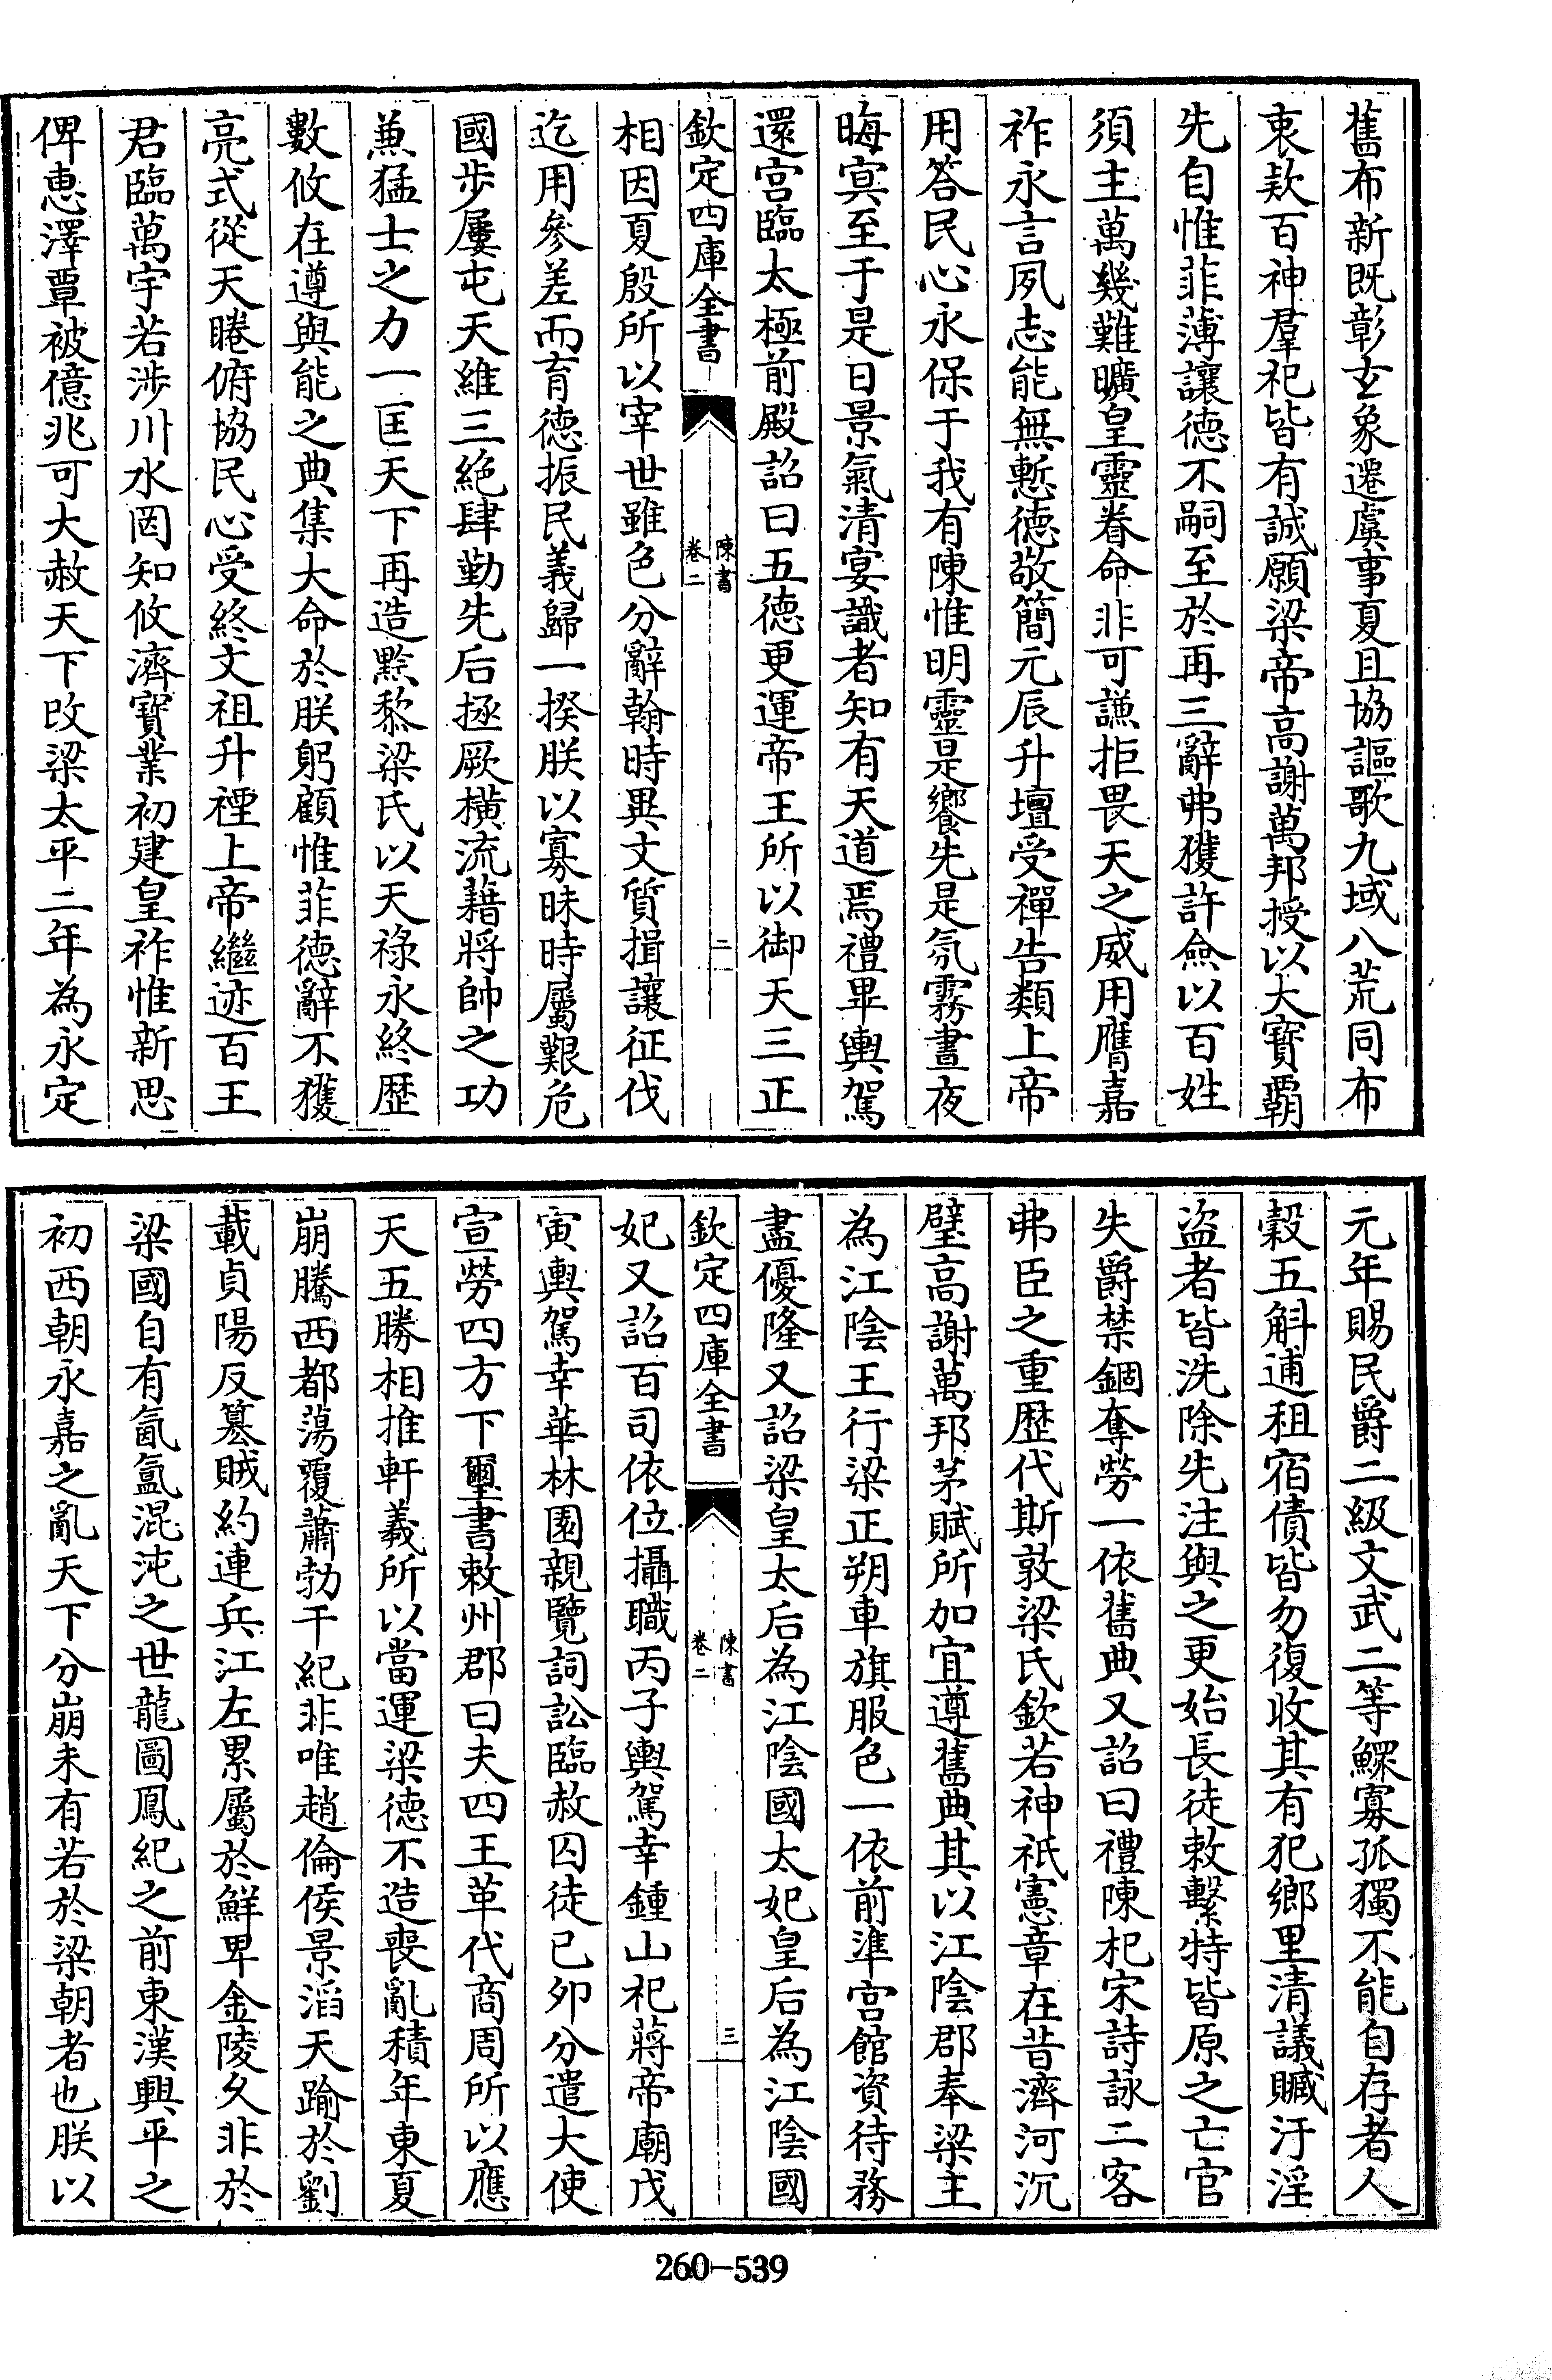 舊布新既彰玄象遷虞事夏且協謳歌九域八荒同布
衷欵百神羣祀皆有誠願梁帝高謝萬邦授以大寳覇
先自惟菲薄讓德不嗣至於再三辭弗獲許僉以百姓
須主萬幾難曠皇靈眷命非可謙拒畏天之威用膺嘉
祚永言夙志能無慙德敬簡元辰升壇受禪告類上帝
用答民心永保于我有陳惟明靈是饗先是氛霧晝夜
晦冥至于是日景氣清宴識者知有天道焉禮畢輿駕
還宫臨太極前殿詔曰五德更運帝王所以御天三正
欽定四庫全書
陳書
卷二
二
相因夏殷所以宰世雖色分辭翰時異文質揖讓征伐
迄用參差而育德振民義歸一揆朕以寡昧時屬艱危
國步屢屯天維三絕肆勤先后拯厥横流藉將帥之功
兼猛士之力一匡天下再造黔黎梁氏以天祿永終歴
數攸在遵與能之典集大命於朕躬顧惟菲德辭不獲
亮式從天睠俯協民心受終文祖升禋上帝繼迹百王
君臨萬宇若涉川水罔知攸濟寶業初建皇祚惟新思
俾惠澤覃被億兆可大赦天下改梁太平二年為永定
元年賜民爵二級文武二等鰥寡孤獨不能自存者人
穀五斛逋租宿債皆勿復收其有犯鄉里清議贓汙淫
盗者皆洗除先注與之更始長徒敕繫特皆原之亡官
失爵禁錮奪勞一依舊典又詔曰禮陳杞宋詩詠二客
弗臣之重歴代斯敦梁氏欽若神祇憲章在昔濟河沉
璧高謝萬邦茅賦所加宜遵舊典其以江陰郡奉梁主
為江陰王行梁正朔車旗服色一依前準宫館資待務
盡優隆又詔梁皇太后為江陰國太妃皇后為江陰國
欽定四庫全書
陳書
卷二
三
妃又詔百司依位攝職丙子輿駕幸鍾山祀蔣帝廟戊
寅輿駕幸華林園親覽詞訟臨赦囚徒已卯分遣大使
宣勞四方下璽書敕州郡曰夫四王革代商周所以應
天五勝相推軒羲所以當運梁德不造喪亂積年東夏
崩騰西都蕩覆蕭勃干紀非唯趙倫侯景滔天踰於劉
載貞陽反簒賊約連兵江左累屬於鮮卑金陵久非於
梁國自有氤氲混沌之世龍圖鳳紀之前東漢興平之
初西朝永嘉之亂天下分崩未有若於梁朝者也朕以
260-539